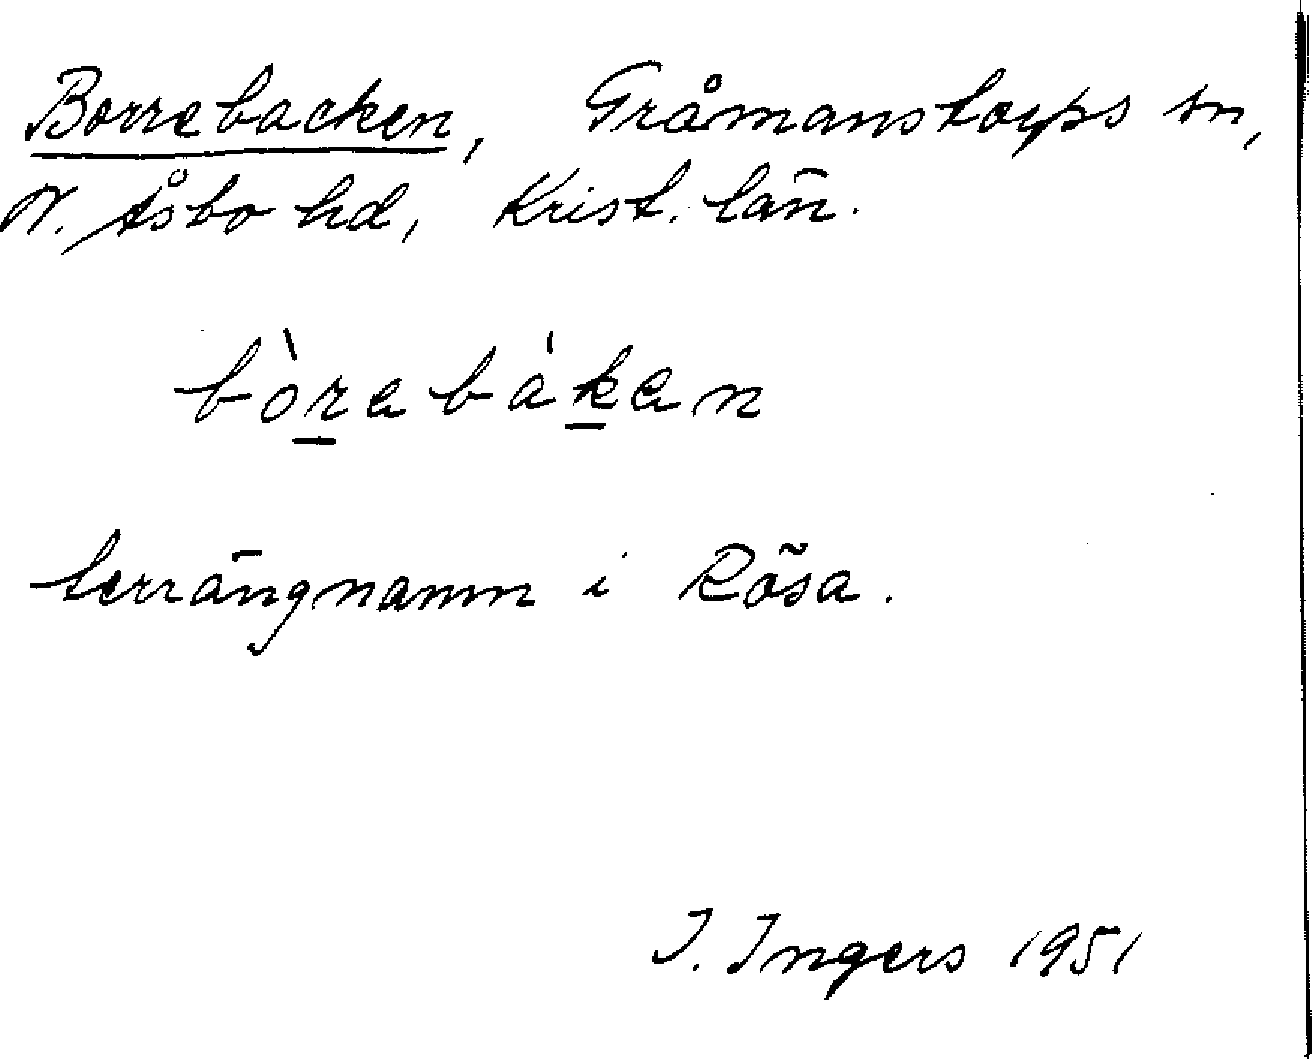 Borrebacken, Gråmanstorps sn,
N. Åsbo hd, Krist. län.
bòrebáken
terrängnamn i Rösa.
I. Ingers 1951